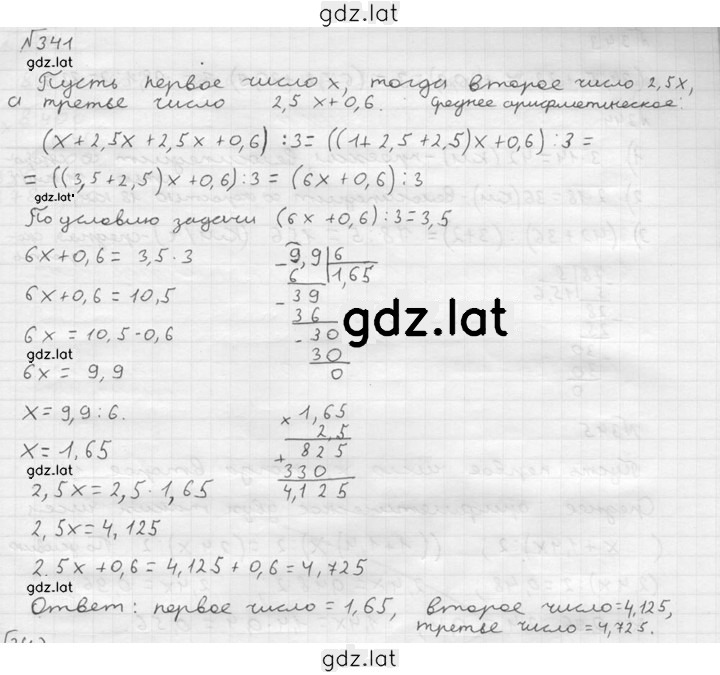 gdz.lat
№341
gdz.lat
Пусть первое число x, тогда второе число 2,5x,
а третье число 2,5x+0,6. Среднее арифметическое:
(x+2,5x+2,5x+0,6):3=((1+2,5+2,5)x+0,6):3=
=((3,5+2,5)x+0,6):3=(6x+0,6):3
gdz.lat
По условию задачи (6x+0,6):3=3,5
6x+0,6=3,5·3
6x+0,6=10,5
6x=10,5-0,6
gdz.lat
6x=9,9
x=9,9:6.
x=1,65
gdz.lat
2,5x=2,5·1,65
2,5x=4,125
2.5x+0,6=4,125+0,6=4,725
gdz.lat
-9,9 6
6 1,65
-39
36
-30
30
0
gdz.lat
× 1,65
2,5
+ 825
330
4,125
Ответ: первое число=1,65, второе число=4,125,
третье число=4,725.
gdz.lat